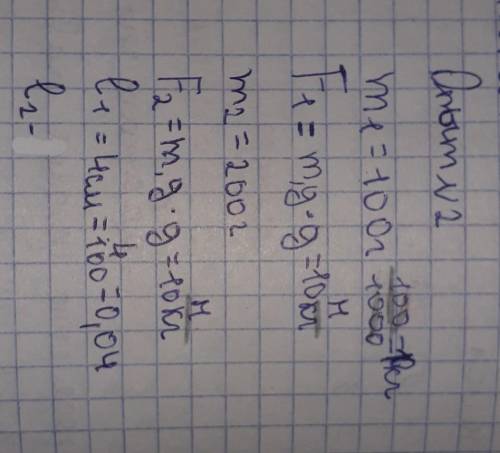 Опыт №2
m₁ = 100г 100/1000 = 1кг
F₁ = m₁g · g = 10 Н/кг
m₂ = 260г
F₂ = m₁g · g = 10 Н/кг
l₁ = 4см = 4/100 = 0,04
l₂ -